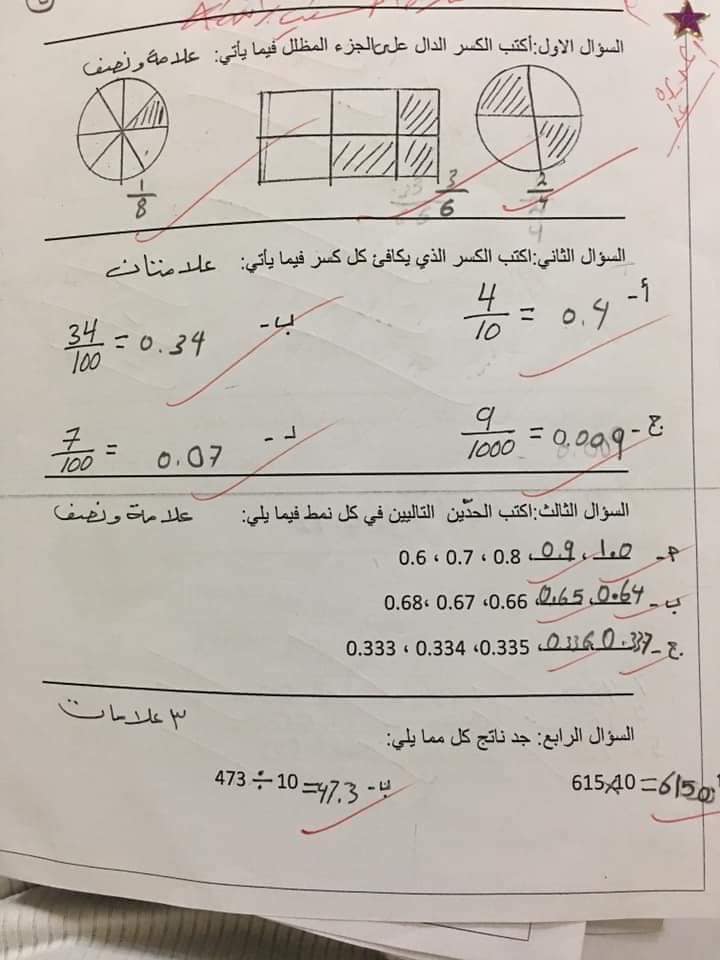 السؤال الاول:أكتب الكسر الدال على الجزء المظلل فيما يأتي: علامة ونصف
2/4 3/6 1/8
السؤال الثاني:اكتب الكسر الذي يكافئ كل كسر فيما يأتي: علامتان
أ- 4/10 = 0.4
ب- 34/100 = 0.34
ج- 9/1000 = 0.009
د- 7/100 = 0.07
السؤال الثالث:اكتب الحدّين التاليين في كل نمط فيما يلي: علامة ونصف
م- 0.6 ، 0.7 ، 0.8 ، 0.9 ، 1.0
ب- 0.68، 0.67 ،0.66 ،0.65 ،0.64
ج- 0.333 ، 0.334 ،0.335 ،0.336 ،0.337
٣ علامات
السؤال الرابع: جد ناتج كل مما يلي:
615×10 = 6150
ب- 473 ÷ 10 = 47.3